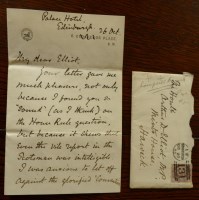 Palace Hotel
Edinburgh
26 Oct
My dear Elliot,
Your letter gave me
much pleasure, not only
because I found you so
"sound" (as I think) on
the Home Rule question,
but because it shows that
even the vile report in the
Scotsman was intelligible
I was anxious to let off
against the glorified
The Honble
Arthur D. Elliot M.P.
Hawick